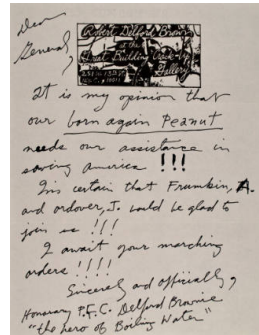 Dear
General,
Robert Delford Brown
at the
Great Building Crack-Up
Gallery
It is my opinion that
our born again Peanut
needs our assistance in
saving America !!!
I'm certain that Frumkin, A.
and ordover, J. would be glad to
join us !!!
I await your marching
orders !!!!
Sincerely and officially,
Honorary P.F.C. Delford Brownie
"the hero of Boiling Water"